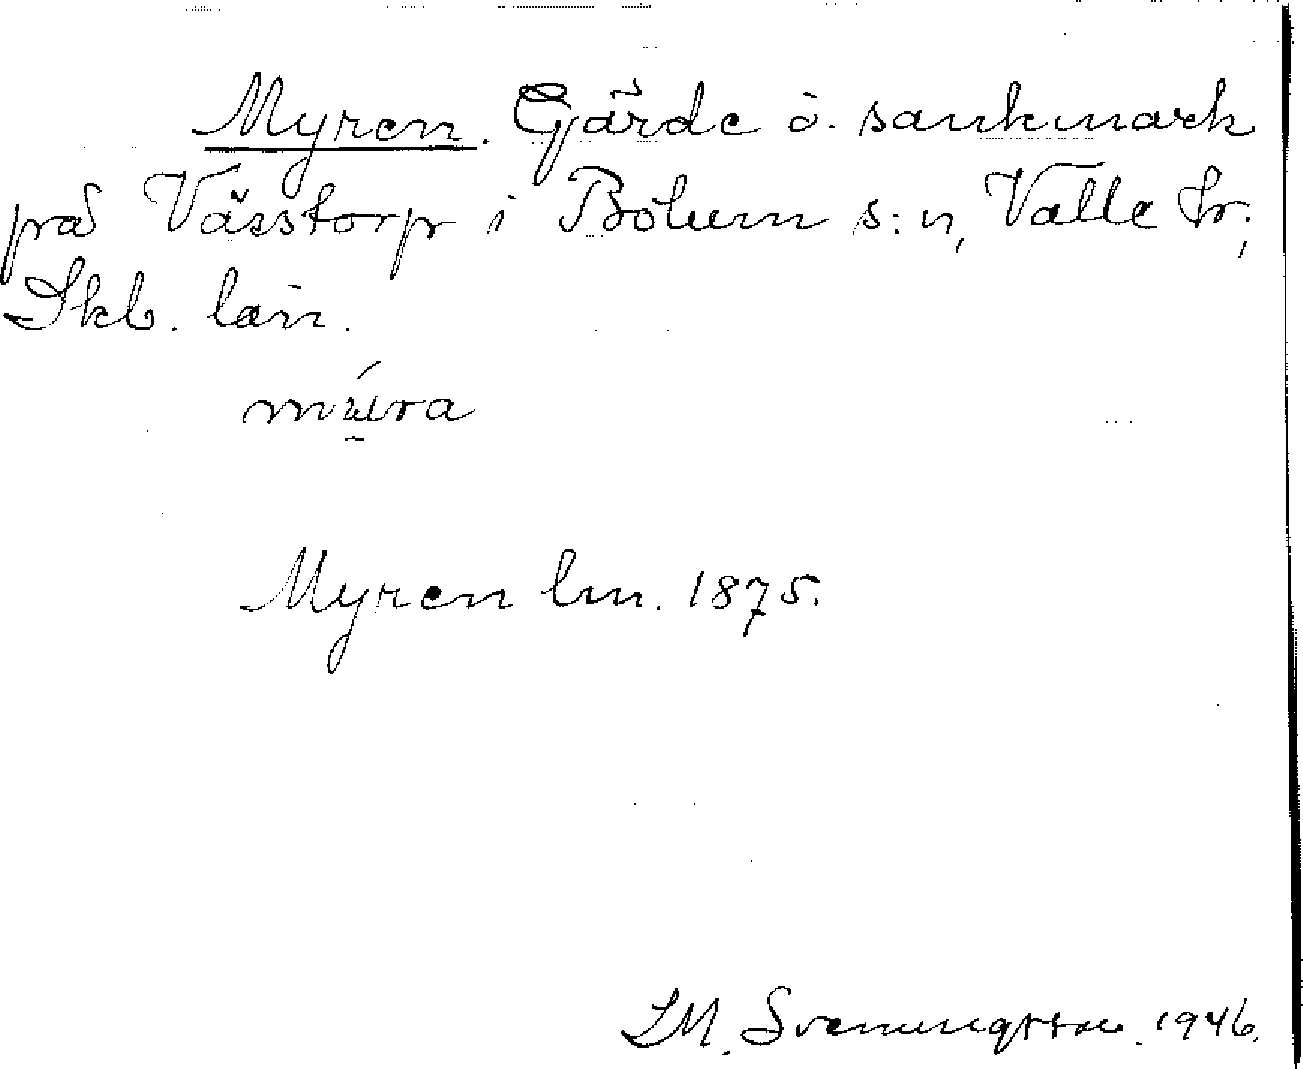 Myren. Gärde o. sankmark
på Vässtorp i Bolum s:n, Valle hr;
Skb. län.
mýra
Myren lm. 1875.
LM. Svenungsson. 1946.